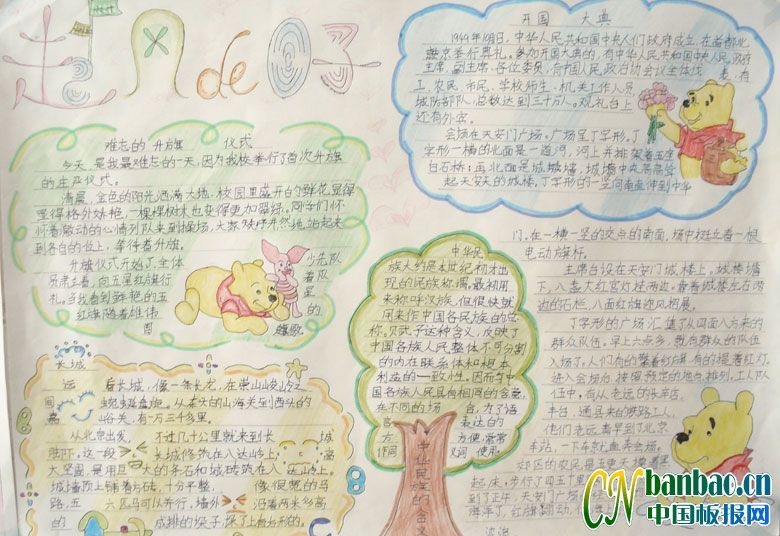 de
难忘的 升旗 仪式
今天，是我最难忘的一天，因为我校举行了首次升旗
的庄严仪式。
清晨，金色的阳光洒满大地，校园里盛开的鲜花显得
显得格外娇艳，一棵棵树木也变得更加翠绿。同学们怀
怀着激动的心情列队来到操场，大家秩序井然地，站起来到
到各自的位上，等待着升旗。
升旗仪式开始了，全体 少先队
员肃立着，向五星红旗行 着队
礼。当我看到鲜艳的五
红旗随着雄伟 的
国 歌
开国 大典
1949年10月1日，中华人民共和国中央人们政府成立，在首都北
京举行典礼。参加开国大典的，有中华人民共和国政府
主席，副主席，各位委员，有中国人民政府协会议全体代 表，有
工，农民，市民，学校师生，机关工作人员
城防部队，总数达到三十万人。观礼台上
还有外宾。
会场在天安门广场。广场呈丁字形。丁
字形一横的北面是一道河，河上并排架着五座
白石桥；再北面是城墙，城墙中央高高耸
起天安天的城楼。丁字形的一竖向南面伸到中华
门，在一横一竖的交点的南面，场中挺立着一根
电动旗杆。
主席台设在天安门城楼上。城楼墙
下，八盏大红宫灯挂两边。靠着城楼左右两
边的石栏，八面红旗迎风招展。
丁字形的广场汇集了从四面八方来的
群众队伍。早上六点多，就有群众的队伍
入场了。人们有的擎着红旗，有的提着红灯，
进入会场后，按照预定的地点排列。工人队
伍中，有从老远的长辛店，
丰台，通县来的铁路工人，
他们老远清早到了北京
车站，一下车就直奔会场。
郊区的农民是五更天
起床，步行了四五十里
到了正午，天安门广场
海洋了，红旗翻动，
中华民
族大约是本世纪初才出
现的民族称谓，最初用
来称呼汉族，但很快就
用来作中国各民族的总
称。
中国各族人民整体不可分割
的内在联系体和根本
利益的一致性。因而与中
国各族人民具有相同的含意，
在不同的场 合，为了语
言 表达的
方 方便，常常
作同 义词 使用。
中华民族的含义
长城
远 看长城，像一条长龙，在崇山峻岭之
间 蜿蜒盘旋。从东头的山海关到西头的
嘉 峪关，有一万三千多里。
从北京出发， 不过几十公里就来到长 城
脚下。这一段 长城修筑在八达岭上，
高 大坚固，是用巨 大的条石和城砖筑在八 达岭上。
城墙顶上铺着方砖，十分平整， 像很宽的马
路，五 六匹马可以并行，墙外 沿着两米多高
的 成排的垛子，垛了上
CN banbao.cn
中国板报网